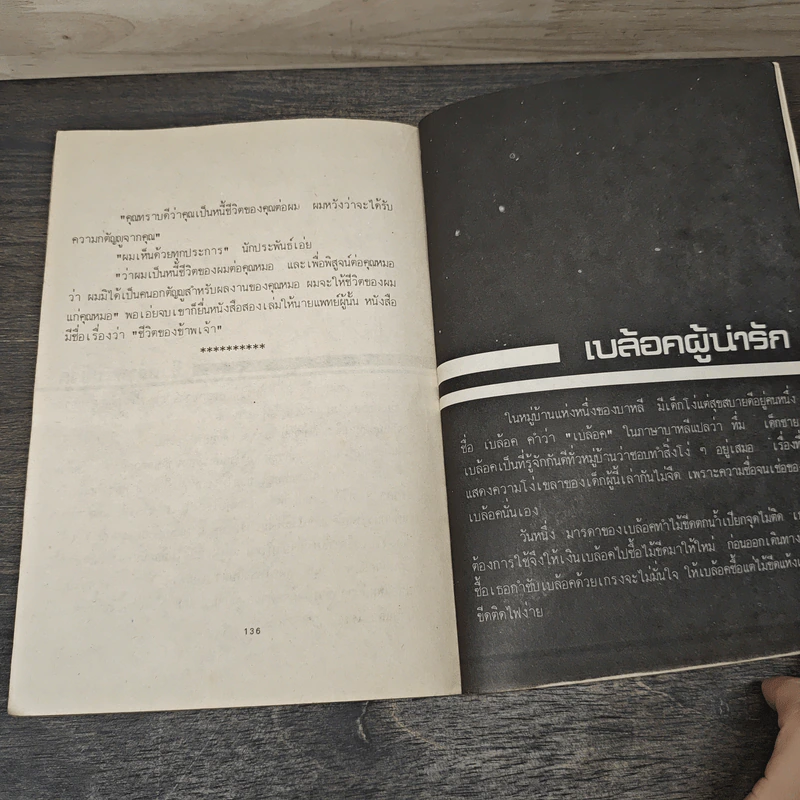 "คุณทราบดีว่าคุณเป็นหนี้ชีวิตของคุณต่อผม ผมหวังว่าจะได้รับ
ความกตัญญูจากคุณ"
"ผมเห็นด้วยทุกประการ" นักประพันธ์เอ่ย
"ว่าผมเป็นหนี้ชีวิตของผมต่อคุณหมอ และเพื่อพิสูจน์ต่อคุณหมอ
ว่า ผมมิได้เป็นคนอกตัญญูสำหรับผลงานของคุณหมอ ผมจะให้ชีวิตของผม
แก่คุณหมอ" พอเอ่ยจบเขาก็ยื่นหนังสือสองเล่มให้นายแพทย์ผู้นั้น หนังสือ
มีชื่อเรื่องว่า "ชีวิตของข้าพเจ้า"
**********
136
เบล้อคผู้น่ารัก
ในหมู่บ้านแห่งหนึ่งของบาหลี มีเด็กโง่แต่สุขสบายดีอยู่คนหนึ่ง
ชื่อ เบล้อค คำว่า "เบล้อค" ในภาษาบาหลีแปลว่า ทึ่ม เด็กชาย
เบล้อคเป็นที่รู้จักกันดีทั่วหมู่บ้านว่าชอบทำสิ่งโง่ ๆ อยู่เสมอ เรื่องที่
แสดงความโง่เขลาของเด็กผู้นี้เล่ากันไม่จืด เพราะความซื่อจนเซ่อของ
เบล้อคนั่นเอง
วันหนึ่ง มารดาของเบล้อคทำไม้ขีดตกน้ำเปียกจุดไม่ติด
ต้องการใช้จึงให้เงินเบล้อคไปซื้อไม้ขีดมาให้ใหม่ ก่อนออกเดินทาง
ซื้อเธอกำชับเบล้อคด้วยเกรงจะไม่มั่นใจ ให้เบล้อคซื้อแต่ไม้ขีดแห้ง
ขีดติดไฟง่าย